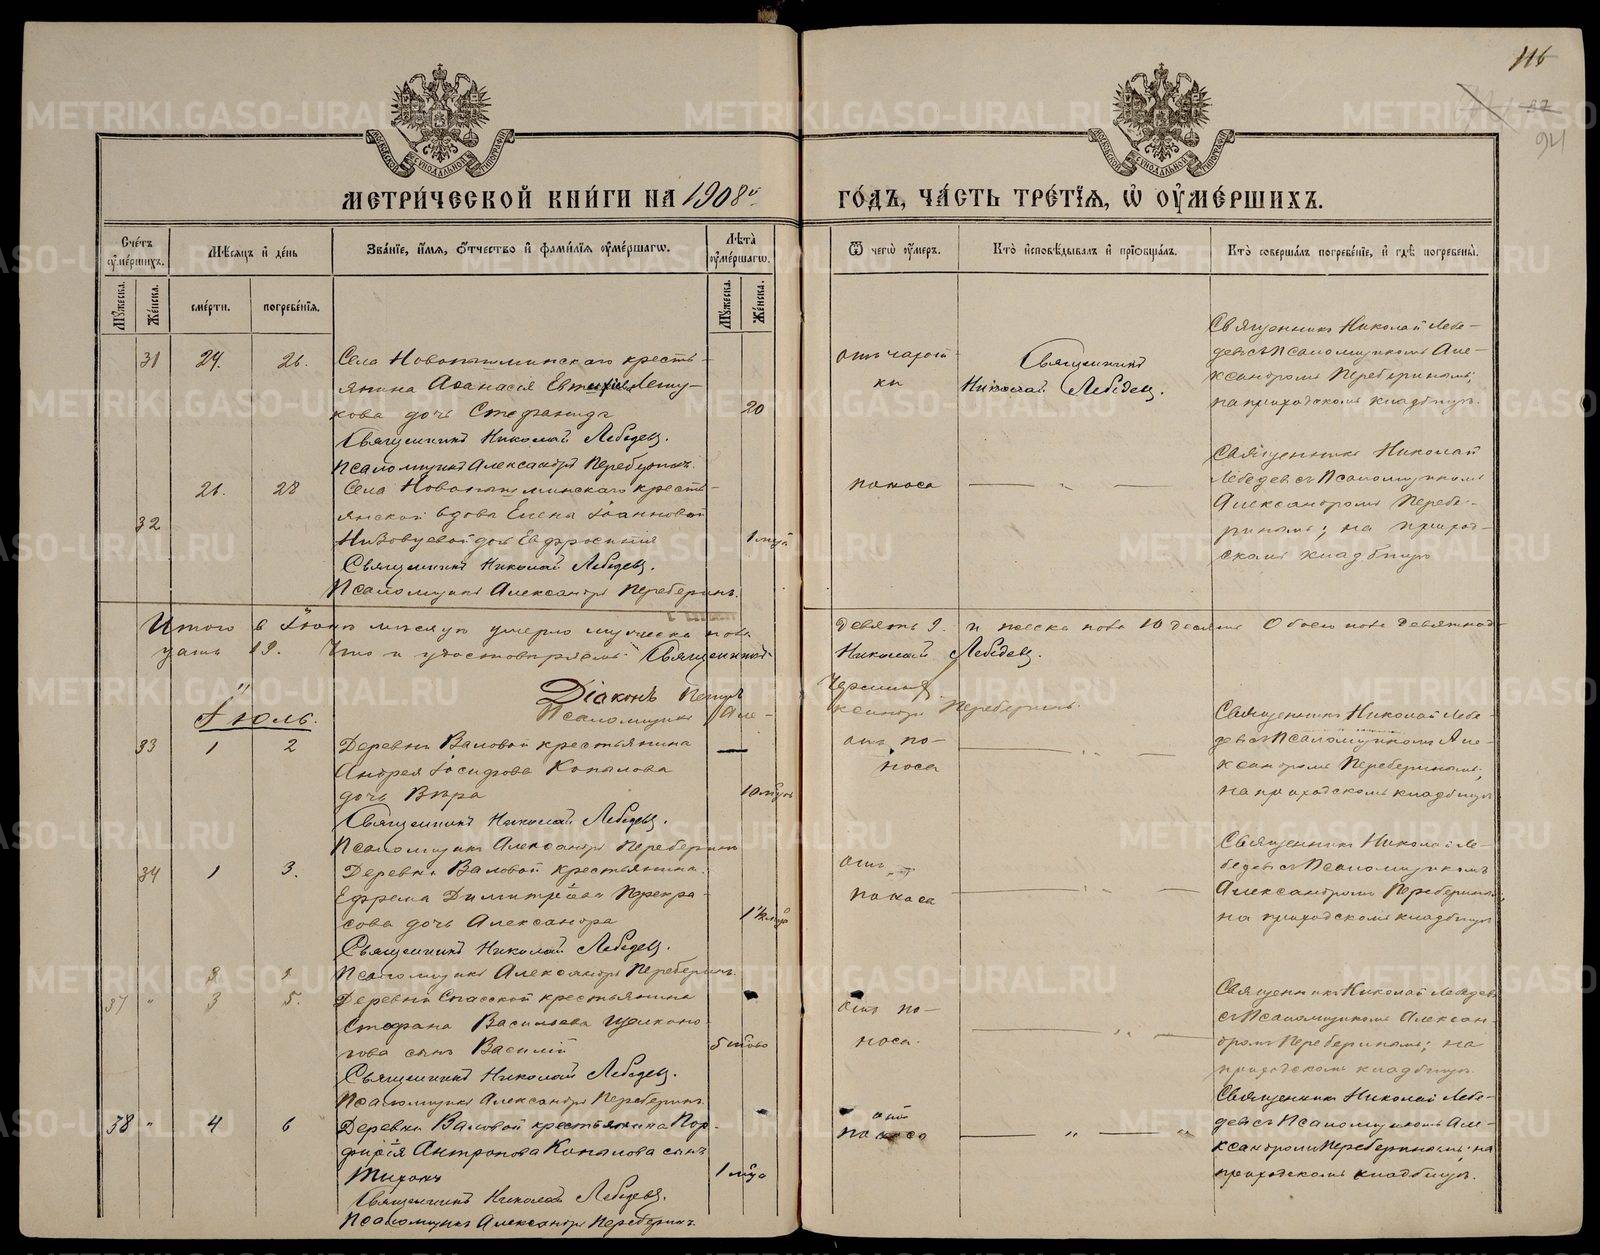 116
94
МОСКОВСКОЙ СѴНОДАЛЬНОЙ ТИПОГРАФІИ
МОСКОВСКОЙ СѴНОДАЛЬНОЙ ТИПОГРАФІИ
МЕТРИ́ЧЕСКОЙ КНИ́ГИ НА 1908й
ГО́ДЪ, ЧА́СТЬ ТРЕ́ТІѦ, Ѡ҆ ОУ҆МЕ́РШИХЪ.
Сче́тъ оу҆ме́ршихъ.
Мѣ́сяцъ и҆ де́нь
Зва́ніе, и҆́мя, ѻ҆́тчество и҆ фами́лія оу҆ме́ршагѡ.
Лѣ́та оу҆ме́ршагѡ.
Ѿ чегѡ̀ оу҆́меръ.
Кто̀ и҆сповѣ́дывалъ и҆ прїѡбща́лъ.
Кто̀ соверша́лъ погребе́ніе, и҆ гдѣ̀ погребены̀.
Му́жеска.
Же́нска.
сме́рти.
погребе́нїя.
Му́жеска.
Же́нска.
31 24. 26. Села Новопышминскаго кресть-
янина Аѳанасія Евтихіева
кова дочь Стефанида 20
Священникъ Николай Лебедевъ.
Псаломщикъ Александръ Переберинъ.
отъ чахот-
ки
Священникъ
Николай Лебедевъ.
Священникъ Николай Лебе-
девъ съ Псаломщикомъ Але-
ксандромъ Переберинымъ;
на приходскомъ кладбищѣ.
26. 28 Села Новопышминскаго кресть-
янской вдова Елена Іоанновой
32
Низовцевой дочь Евфросинія 1 мѣся
Священникъ Николай Лебедевъ.
Псаломщикъ Александръ Переберинъ.
поноса
— „ —
Священникъ Николай
Лебедевъ съ Псаломщикомъ
Александромъ Перебе-
ринымъ; на приход-
скомъ кладбищѣ
Итого в Іюнѣ мѣсяцѣ умерло мужеска пола
девять 9. и женска пола 10 десять Обоего пола девятнад-
цать 19. Что и удостовѣряемъ: Священникъ
Николай Лебедевъ.
Діаконъ Петръ
Псаломщикъ Але-
ксандръ Переберинъ.
Іюль.
33 1 2 Деревни Валовой крестьянина —
Андрея Іосифова Копылова
дочь Вѣра 10 мѣсяц
Священникъ Николай Лебедевъ.
Псаломщикъ Александръ Переберинъ
отъ по-
носа
— „ —
Священникъ Николай Лебе-
девъ съ Псаломщикомъ Але-
ксандромъ Переберинымъ;
на приходскомъ кладбищѣ
34 1 3. Деревни Валовой крестьянина
Ефрема Димитріева Некра-
сова дочь Александра 1½ мѣся
Священникъ Николай Лебедевъ.
Псаломщикъ Александръ Переберинъ.
отъ
поноса
— „ —
Священникъ Николай Ле-
бедевъ съ Псаломщикомъ
Александромъ Переберинымъ;
на приходскомъ кладбищѣ
37 „ 3 5. Деревни Спасской крестьянина
Стефана Васильева Щелконо-
гова сынъ Василій 5
Священникъ Николай Лебедевъ.
Псаломщикъ Александръ Переберинъ.
отъ по-
носа.
— „ —
Священникъ Николай Лебедевъ
съ Псаломщикомъ Алексан-
дромъ Переберинымъ; на
приходскомъ кладбищѣ.
38 „ 4 6 Деревни Валовой крестьянина Пор-
фирія Антропова Копылова сынъ
Тихонъ 1
Священникъ Николай Лебедевъ.
Псаломщикъ Александръ Переберинъ.
отъ
поноса
— „ — „
Священникъ Николай Лебе-
девъ съ Псаломщикомъ Але-
ксандромъ Переберинымъ; на
приходскомъ кладбищѣ.
METRIKI.GASO-URAL.RU